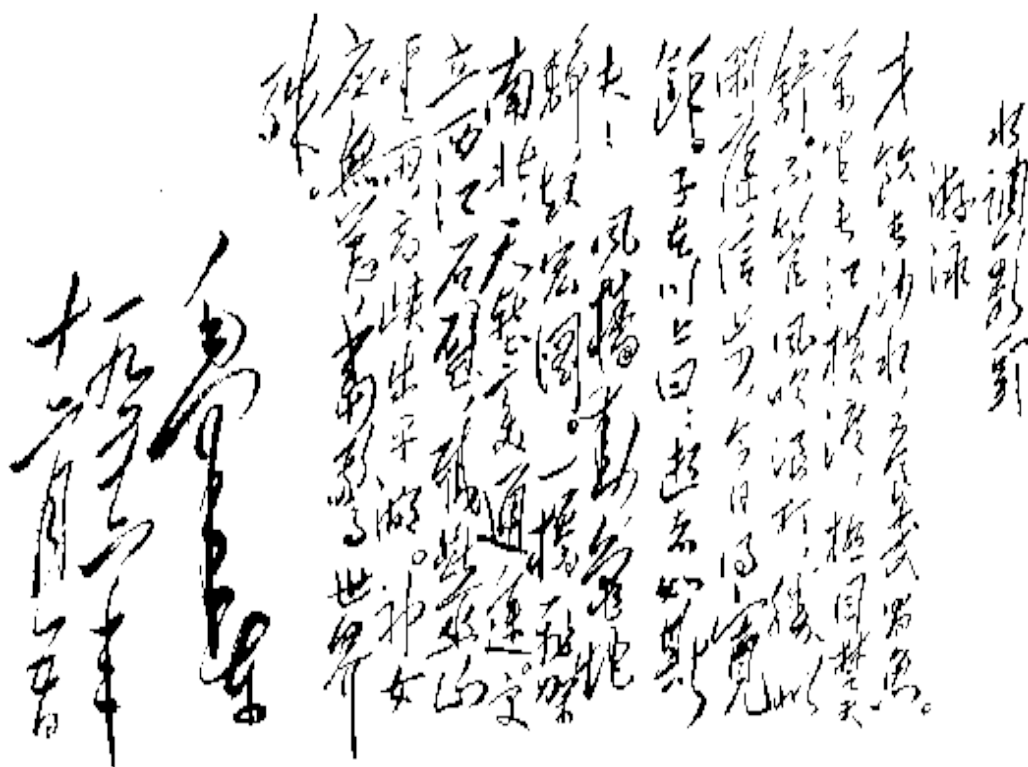 水調歌頭
游泳
才飲長沙水,又食武昌魚。
萬里長江横渡,極目楚天
舒。不管風吹浪打,勝似
閑庭信步,今日得寬
餘。子在川上曰:逝者如斯
夫! 風檣動,龜蛇
靜,起宏圖。一橋飛架
南北,天塹變通途。更
立西江石壁,截斷巫山
雲雨,高峡出平湖。神女
應無恙,當驚世界
殊。
毛澤東
一九五六年
十二月五日